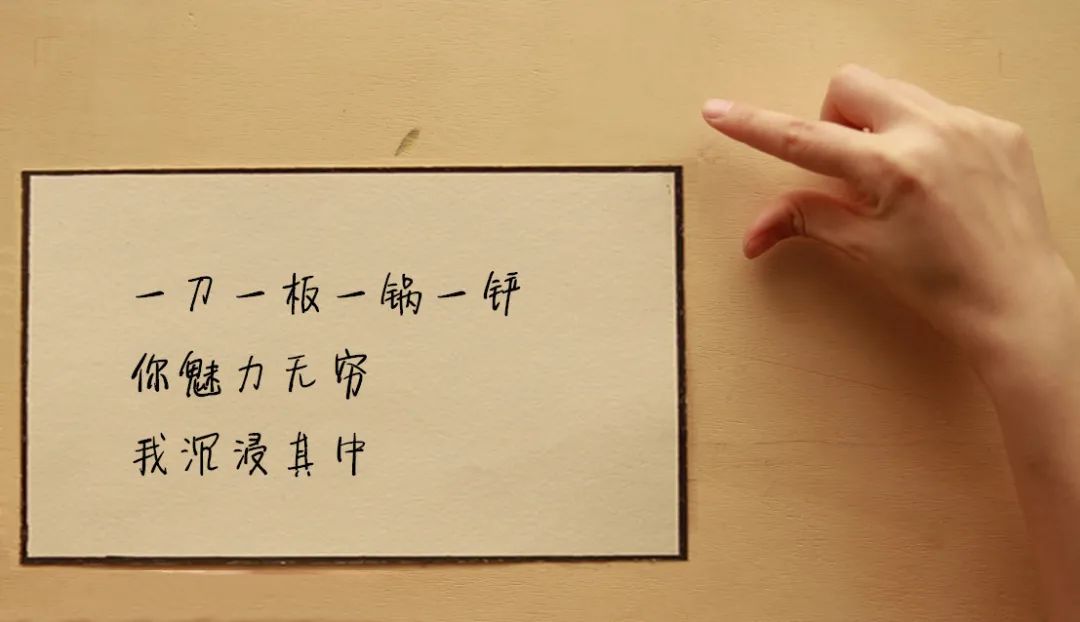 一刀一板一锅一铲
你魅力无穷
我沉浸其中